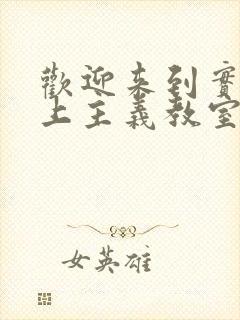 歡迎来到實
上主義教室
女英雄